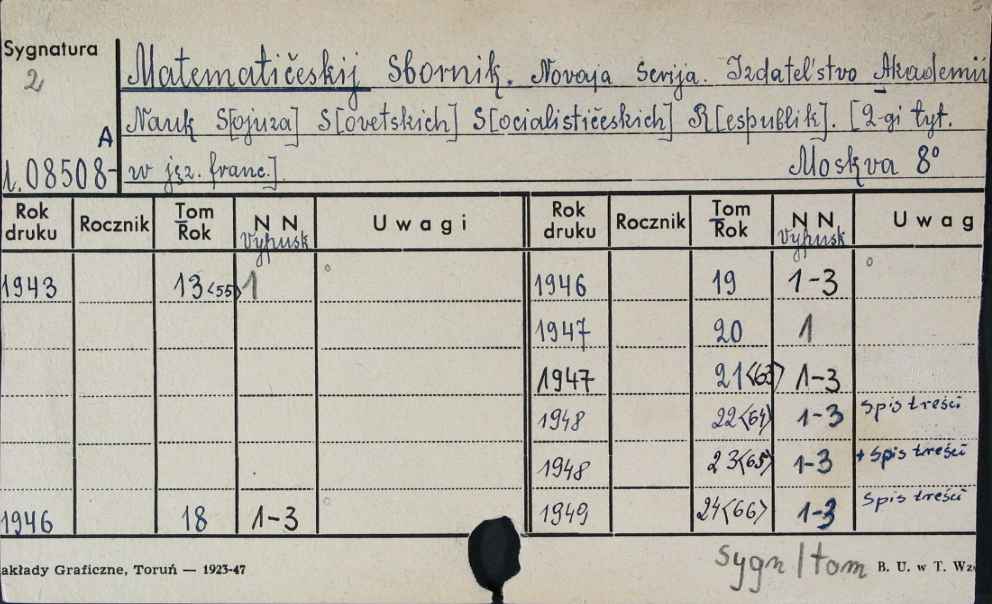 Sygnatura
2
Matematičeskij Sbornik. Novaja Serija. Izdatel'stvo Akademii
Nauk S[ojuza] S[ovetskich] S[ocialističeskich] R[espublik]. [2-gi tyt.
A
1.08508- w jęz. franc.]. Moskva 8°
Rok druku Rocznik Tom Rok N N Vypusk Uwagi Rok druku Rocznik Tom Rok N N Vypusk Uwag
1943 13<55> 1 1946 19 1-3
1947 20 1
1947 21<63> 1-3
1948 22<64> 1-3 Spis treści
1948 23<65> 1-3 + Spis treści
1946 18 1-3 1949 24<66> 1-3 Spis treści
sygn/tom
akłady Graficzne, Toruń — 1923-47 B. U. w T. Wz